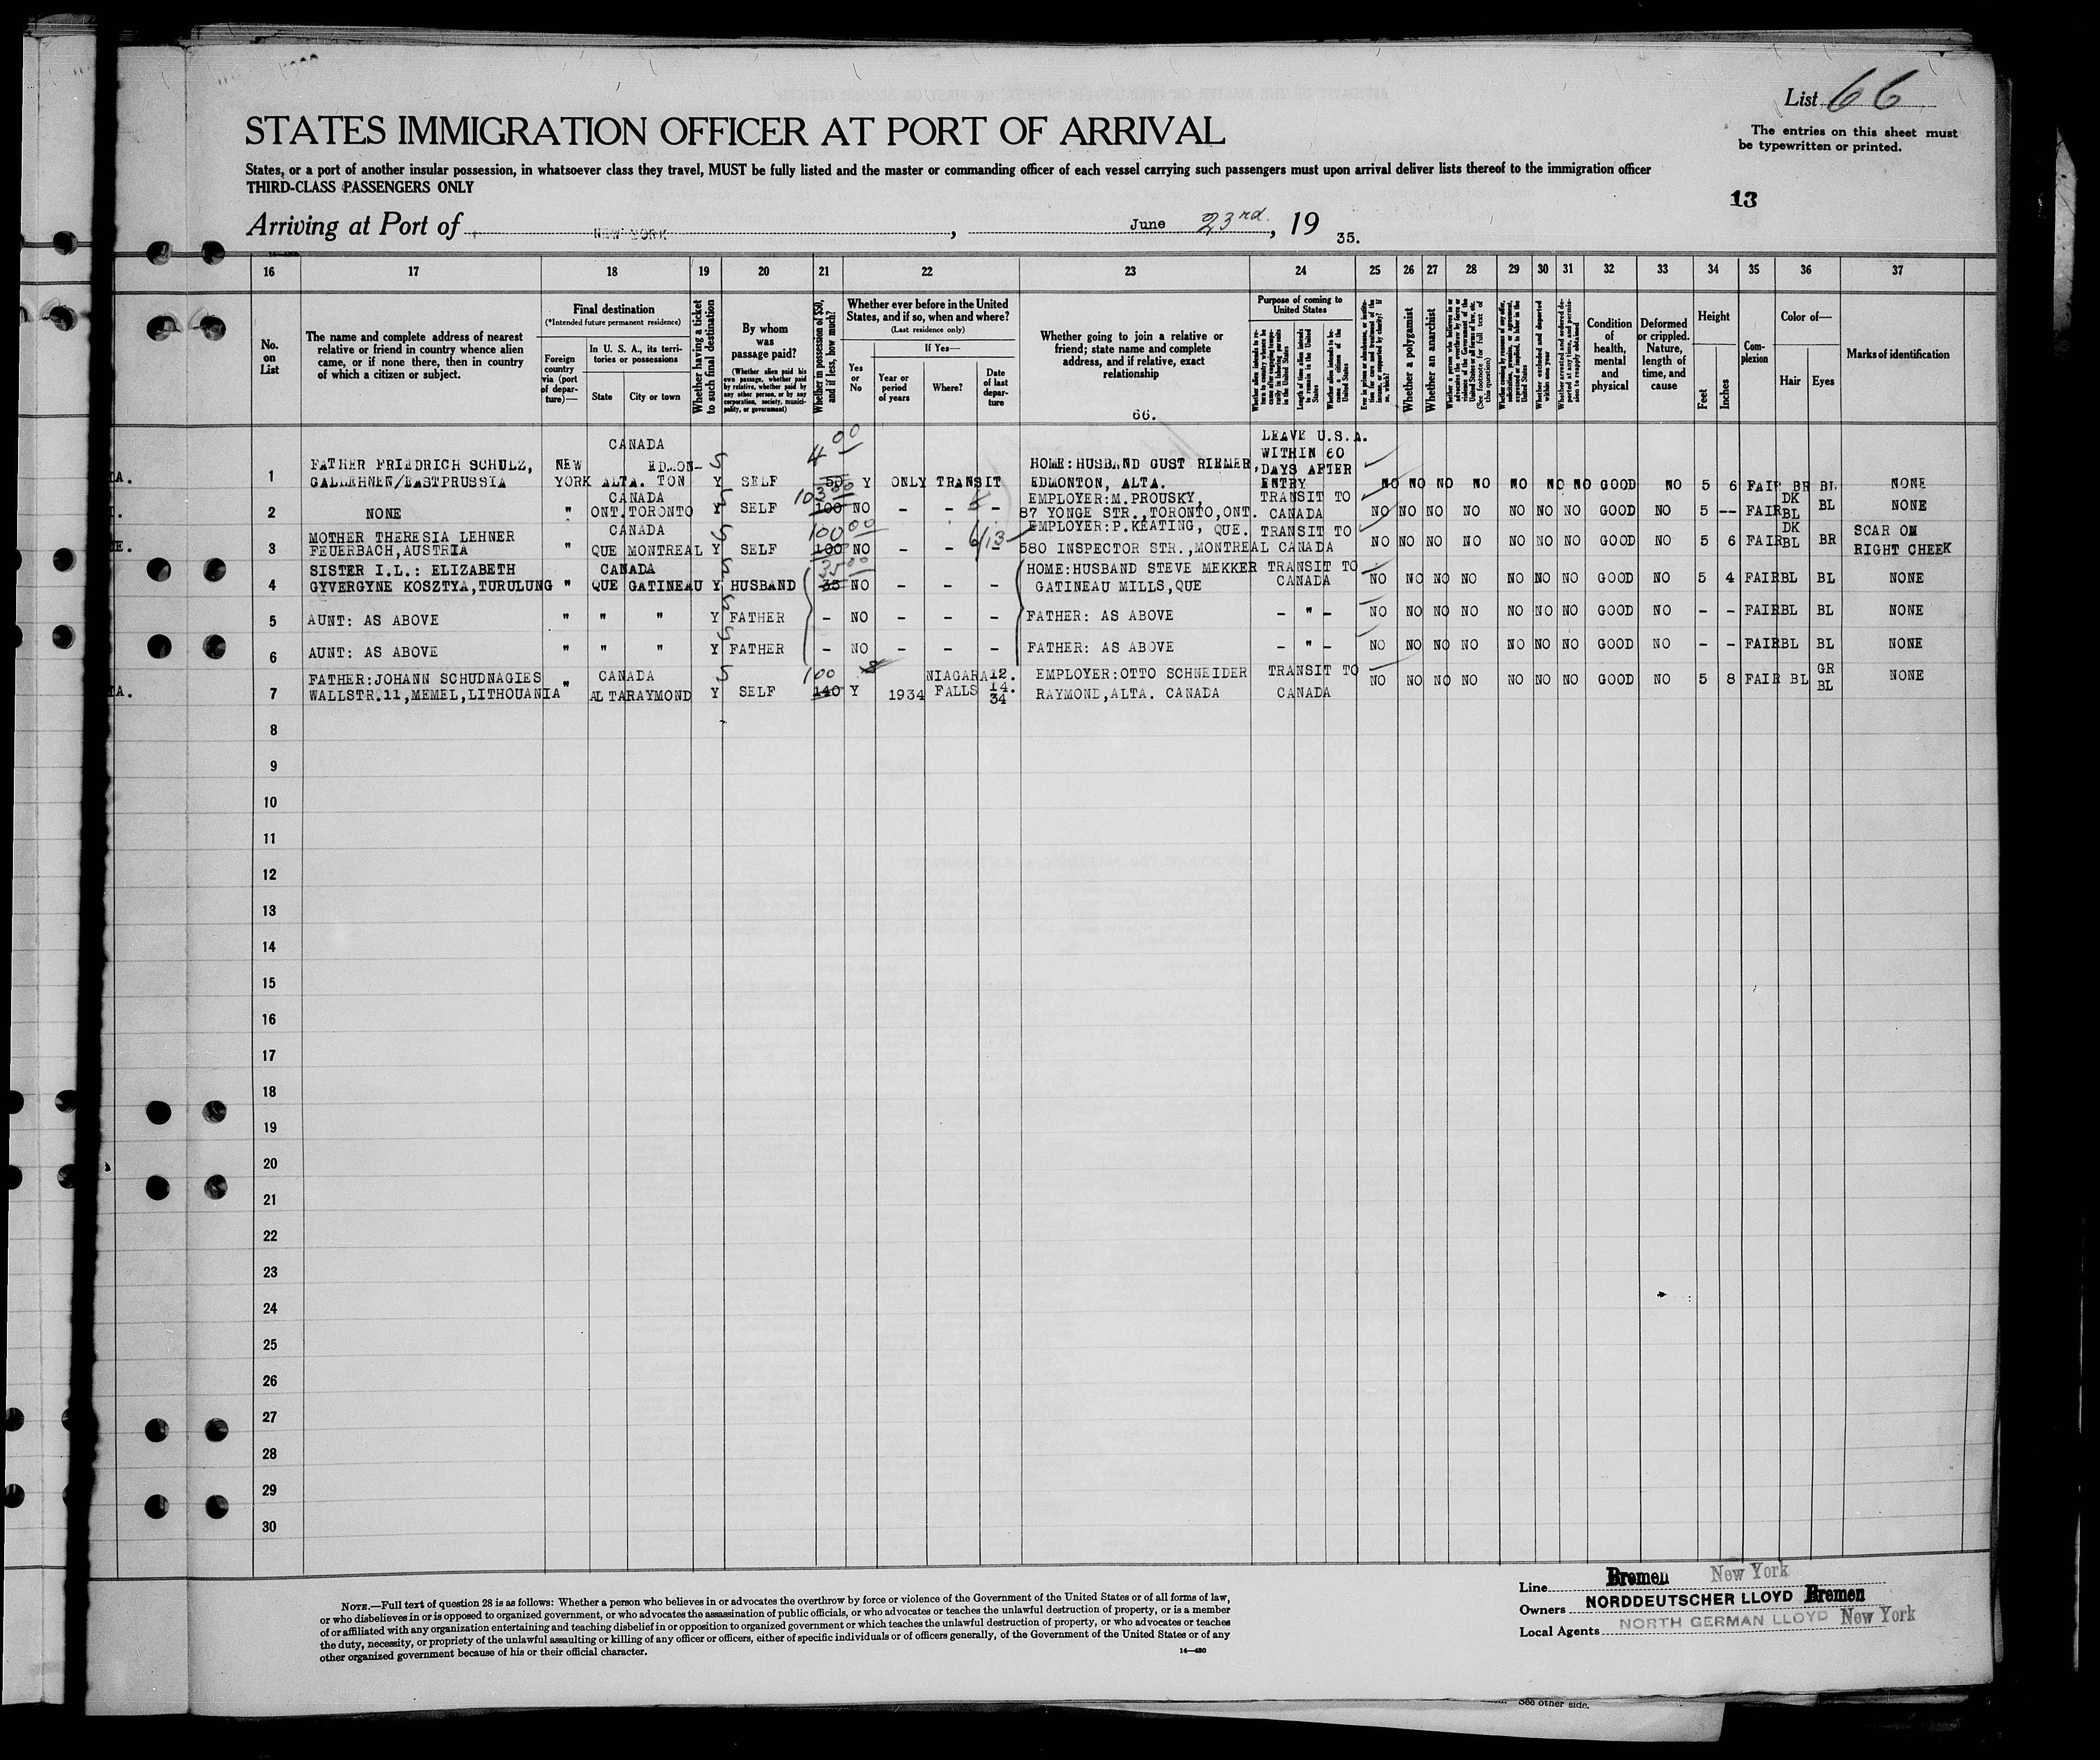 List 66
The entries on this sheet must
be typewritten or printed.
STATES IMMIGRATION OFFICER AT PORT OF ARRIVAL
States, or a port of another insular possession, in whatsoever class they travel, MUST be fully listed and the master or commanding officer of each vessel carrying such passengers must upon arrival deliver lists thereof to the immigration officer
THIRD-CLASS PASSENGERS ONLY
13
Arriving at Port of NEW YORK, June 23rd, 19 35.
16 17 18 19 20 21 22 23 24 25 26 27 28 29 30 31 32 33 34 35 36 37
No. on List
The name and complete address of nearest
relative or friend in country whence alien
came, or if none there, then in country
of which a citizen or subject.
Final destination
(*Intended future permanent residence)
Foreign country via (port of departure)—
In U. S. A., its territories or possessions
State
City or town
Whether having a ticket to such final destination
By whom was passage paid?
(Whether alien paid his own passage, whether paid by relative, whether paid by any other person, or by any corporation, society, municipality, or government)
Whether in possession of $50, and if less, how much?
Whether ever before in the United
States, and if so, when and where?
(Last residence only)
Yes or No
If Yes—
Year or period of years
Where?
Date of last departure
Whether going to join a relative or
friend; state name and complete
address, and if relative, exact
relationship
66.
Purpose of coming to United States
Whether alien intends to return to country whence he came after engaging temporarily in laboring pursuits in the United States
Length of time alien intends to remain in the United States
Whether alien intends to become a citizen of the United States
Ever in prison or almshouse, or institution for care and treatment of the insane, or supported by charity? If so, which?
Whether a polygamist
Whether an anarchist
(See footnote for full text of this question)
Whether excluded and deported within one year
Condition of health, mental and physical
Deformed or crippled. Nature, length of time, and cause
Height
Feet
Inches
Complexion
Color of—
Hair
Eyes
Marks of identification
CANADA 4 00 LEAVE U.S.A.
WITHIN 60
TA. 1 FATHER FRIEDRICH SCHULZ, NEW EDMON- 5 HOME:HUSBAND GUST RIEMER, DAYS AFTER
GALLEHNEN/EASTPRUSSIA YORK ALTA. TON Y SELF 50 Y ONLY TRANSIT EDMONTON, ALTA. ENTRY NO NO NO NO NO NO NO GOOD NO 5 6 FAIR BR BL NONE
CANADA 5 103 00 EMPLOYER:M.PROUSKY, TRANSIT TO DK
2 NONE " ONT. TORONTO Y SELF 100 NO - - - 87 YONGE STR.,TORONTO,ONT. CANADA NO NO NO NO NO NO NO GOOD NO 5 -- FAIR BL BL NONE
MOTHER THERESIA LEHNER CANADA 5 100 00 6/13 EMPLOYER:P.KEATING, QUE. TRANSIT TO DK SCAR ON
E. 3 FEUERBACH,AUSTRIA " QUE MONTREAL Y SELF 100 NO - - - 580 INSPECTOR STR.,MONTREAL CANADA NO NO NO NO NO NO NO GOOD NO 5 6 FAIR BL BR RIGHT CHEEK
SISTER I.L.: ELIZABETH CANADA 5 35 00 HOME:HUSBAND STEVE MEKKER TRANSIT TO
4 GYVERGYNE KOSZTYA,TURULUNG " QUE GATINEAU Y HUSBAND 35 NO - - - GATINEAU MILLS,QUE CANADA NO NO NO NO NO NO NO GOOD NO 5 4 FAIR BL BL NONE
5 AUNT: AS ABOVE " " " 5 Y FATHER - NO - - - FATHER: AS ABOVE - " - NO NO NO NO NO NO NO GOOD NO - - FAIR BL BL NONE
6 AUNT: AS ABOVE " " " 5 Y FATHER - NO - - - FATHER: AS ABOVE - " - NO NO NO NO NO NO NO GOOD NO - - FAIR BL BL NONE
FATHER:JOHANN SCHUDNAGIES CANADA 5 100 NIAGARA 12. EMPLOYER:OTTO SCHNEIDER TRANSIT TO GR
TA. 7 WALLSTR.11,MEMEL,LITHOUANIA " ALTA RAYMOND Y SELF 140 Y 1934 FALLS 14. 34 RAYMOND,ALTA. CANADA CANADA NO NO NO NO NO NO NO GOOD NO 5 8 FAIR BL BL NONE
8
9
10
11
12
13
14
15
16
17
18
19
20
21
22
23
24
25
26
27
28
29
30
NOTE.—Full text of question 28 is as follows: Whether a person who believes in or advocates the overthrow by force or violence of the Government of the United States or of all forms of law,
or who disbelieves in or is opposed to organized government, or who advocates the assassination of public officials, or who advocates or teaches the unlawful destruction of property, or is a member
of or affiliated with any organization entertaining and teaching disbelief in or opposition to organized government or which teaches the unlawful destruction of property, or who advocates or teaches
the duty, necessity, or propriety of the unlawful assaulting or killing of any officer or officers, either of specific individuals or of officers generally, of the Government of the United States or of any
other organized government because of his or their official character.
14—480
Line Bremen New York
Owners NORDDEUTSCHER LLOYD Bremen
Local Agents NORTH GERMAN LLOYD New York
See other side.